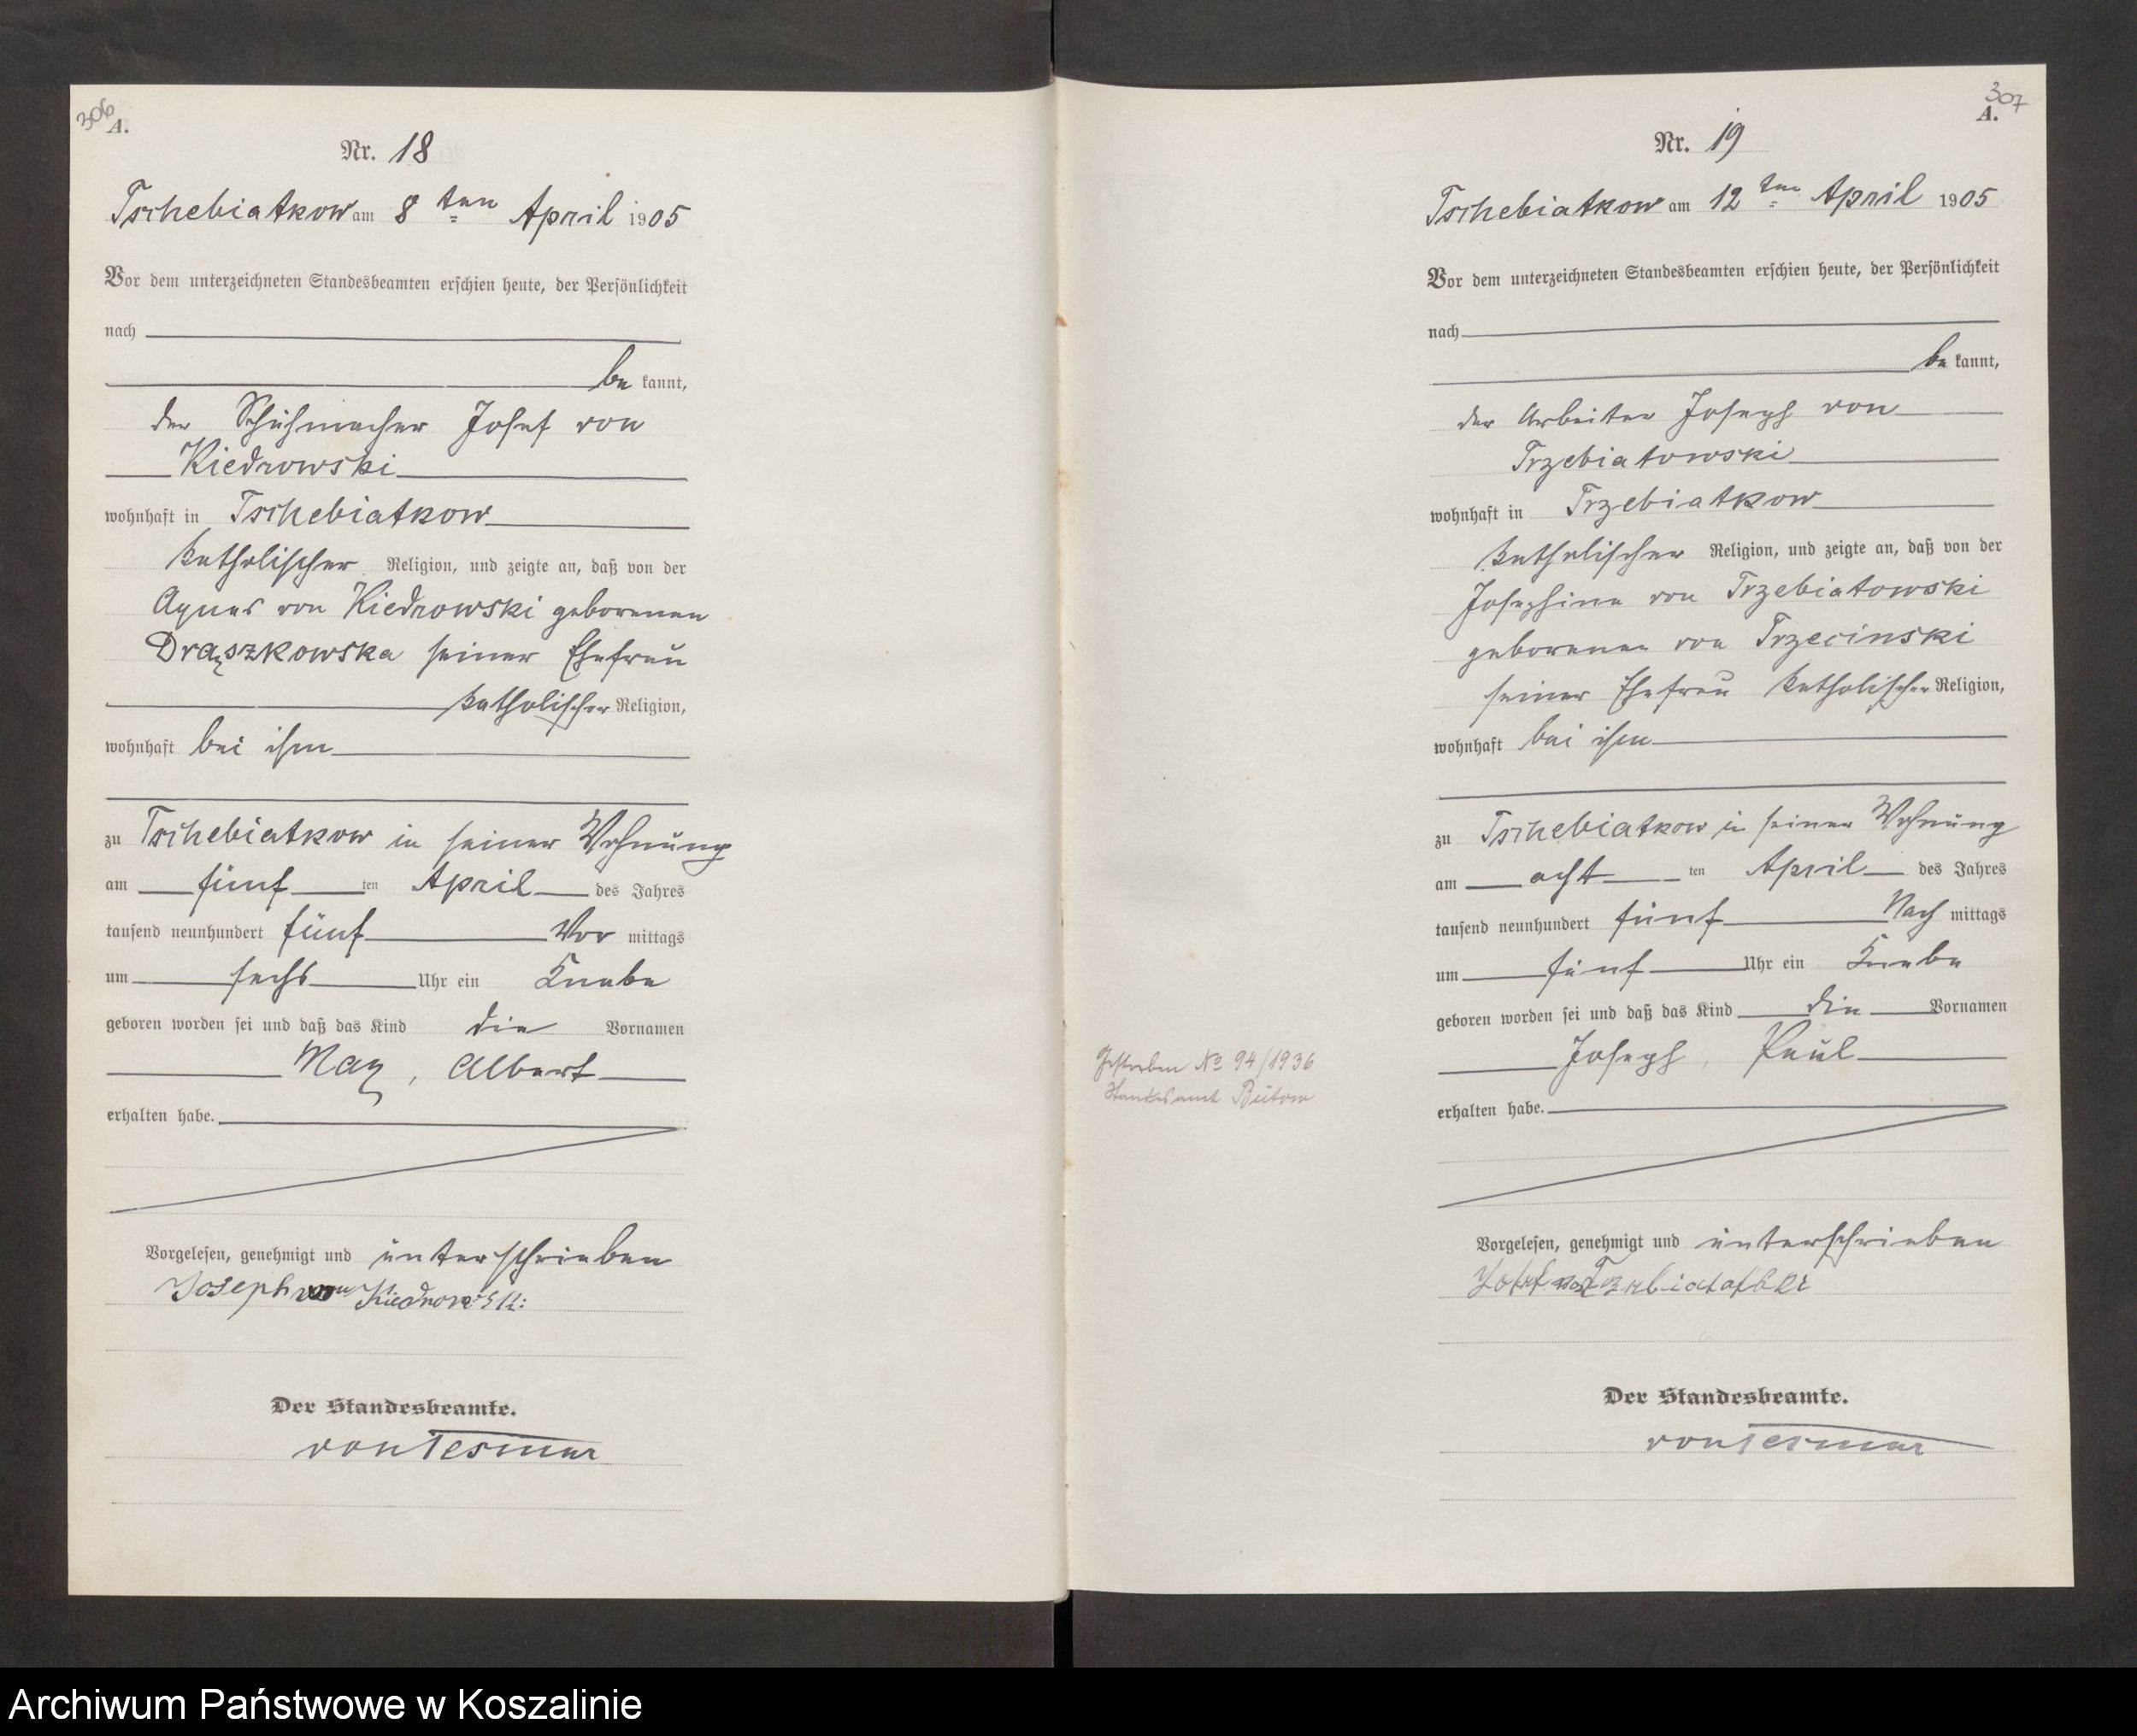 306
A.
Nr. 18
Tschebiatkow am 8 ten April 1905
Vor dem unterzeichneten Standesbeamten erschien heute, der Persönlichkeit
nach
be kannt,
der Schuhmacher Josef von
Kiedrowski
wohnhaft in Tschebiatkow
katholischer Religion, und zeigte an, daß von der
Agnes von Kiedrowski geborenen
Drązkowska seiner Ehefrau
katholischer Religion,
wohnhaft bei ihm
zu Tschebiatkow in seiner Wohnung
am fünf ten April des Jahres
tausend neunhundert fünf Vor mittags
um sechs Uhr ein Knabe
geboren worden sei und daß das Kind die Vornamen
Max, Albert
erhalten habe.
Vorgelesen, genehmigt und unterschrieben
Joseph von Kiedrowski
Der Standesbeamte.
von Tesmar
307
A.
Nr. 19
Tschebiatkow am 12 ten April 1905
Vor dem unterzeichneten Standesbeamten erschien heute, der Persönlichkeit
nach
be kannt,
der Arbeiter Joseph von
Trzebiatowski
wohnhaft in Trzebiatkow
katholischer Religion, und zeigte an, daß von der
Josephine von Trzebiatowski
geborenen von Trzecinski
seiner Ehefrau katholischer Religion,
wohnhaft bei ihm
zu Tschebiatkow in seiner Wohnung
am acht ten April des Jahres
tausend neunhundert fünf Nach mittags
um fünf Uhr ein Knabe
geboren worden sei und daß das Kind die Vornamen
Joseph, Paul
erhalten habe.
Gestorben No 94/1936
Standesamt Bütow
Vorgelesen, genehmigt und unterschrieben
Der Standesbeamte.
von Tesmar
Archiwum Państwowe w Koszalinie